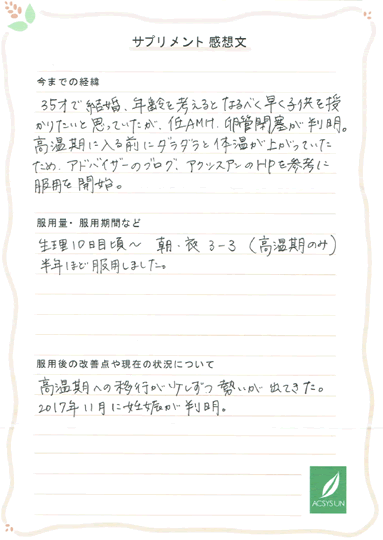 サプリメント 感想文
今までの経緯
35才で結婚、年齢を考えるとなるべく早く子供を授
かりたいと思っていたが、低AMH、卵管閉塞が判明。
高温期に入る前にダラダラと体温が上がっていった
ため、アドバイザーのブログ、アクシスアンのHPを参考に
服用を開始。
服用量・服用期間など
生理10日目頃〜 朝・夜 3-3 (高温期のみ)
半年ほど服用しました。
服用後の改善点や現在の状況について
高温期への移行が少しずつ勢いが出てきた。
2017年11月に妊娠が判明。
ACSYSUN